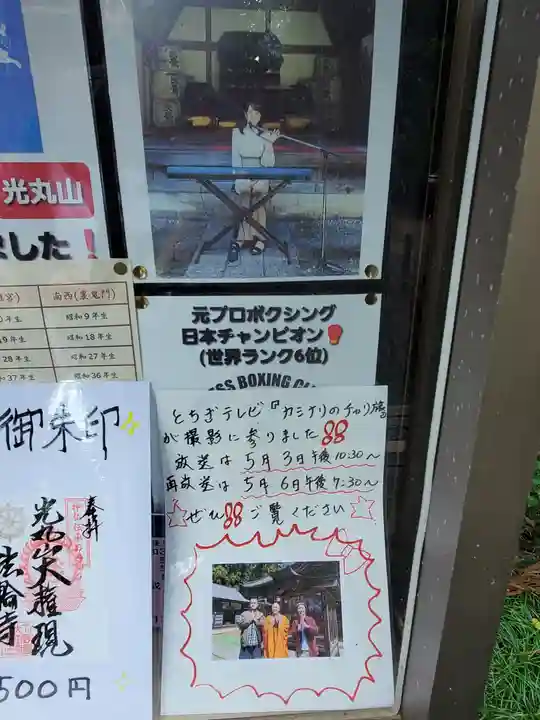 光丸山
した！
南西(裏鬼門)
昭和9年生
昭和18年生
28年生
昭和27年生
37年生
昭和36年生
元プロボクシング
日本チャンピオン
(世界ランク6位)
御朱印
奉拝
光丸大権現
法輪寺
500円
とちぎテレビ『カミナリのチャリ旅』
が撮影に参りました!!
放送は5月3日午後10:30～
再放送は5月6日午後7:30～
ぜひ!!ご覧ください